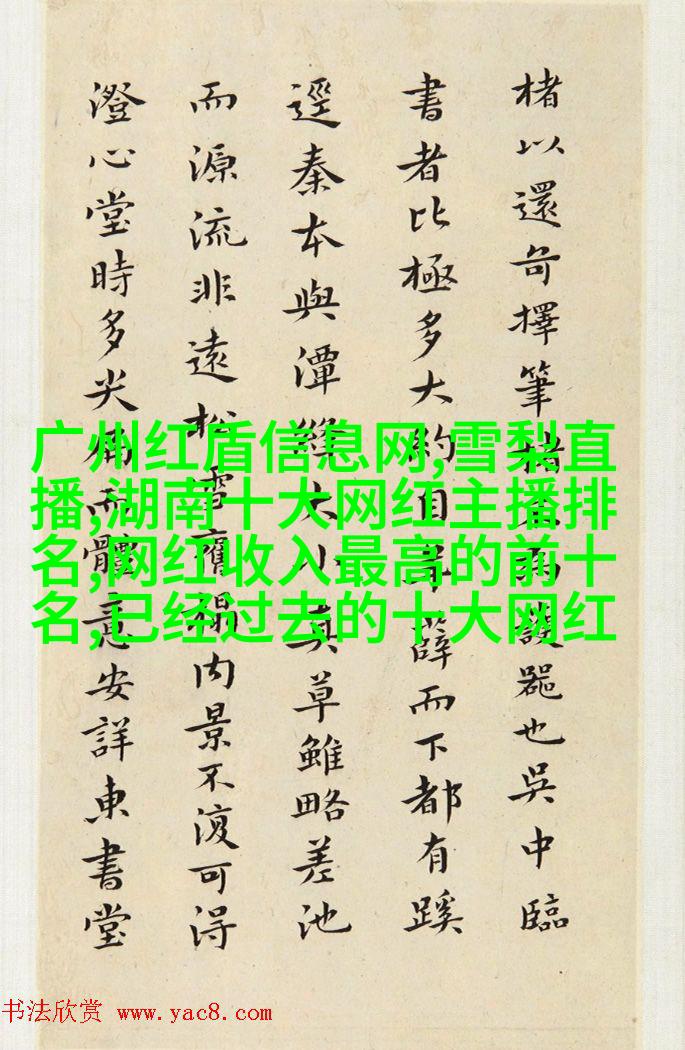 楮以還奇擇筆器也吳中臨
書者比極多大約自薛而下都有蹊
逕秦本與潭絳大小真草雖略差池
而源流非遠松雪舊榻内景不復可得
澄心堂時多尖而體意安詳東書堂
广州红盾信息网,雪梨直
播,湖南十大网红主播排
名,网红收入最高的前十
名,已经过去的十大网红
书法欣赏 www.yac8.com